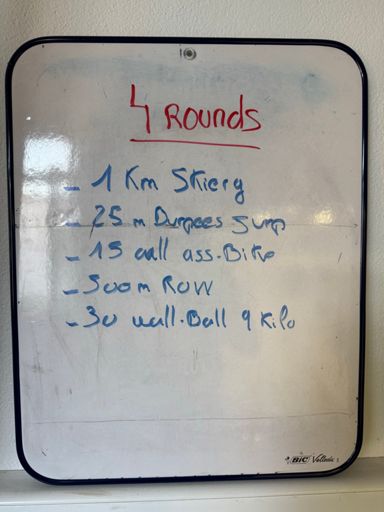 4 Rounds
- 1 Km Skierg
- 25 m Burpees Jump
- 15 call ass.Bike
- 500m Row
- 30 wall.Ball 9 Kilo
BIC Velleda